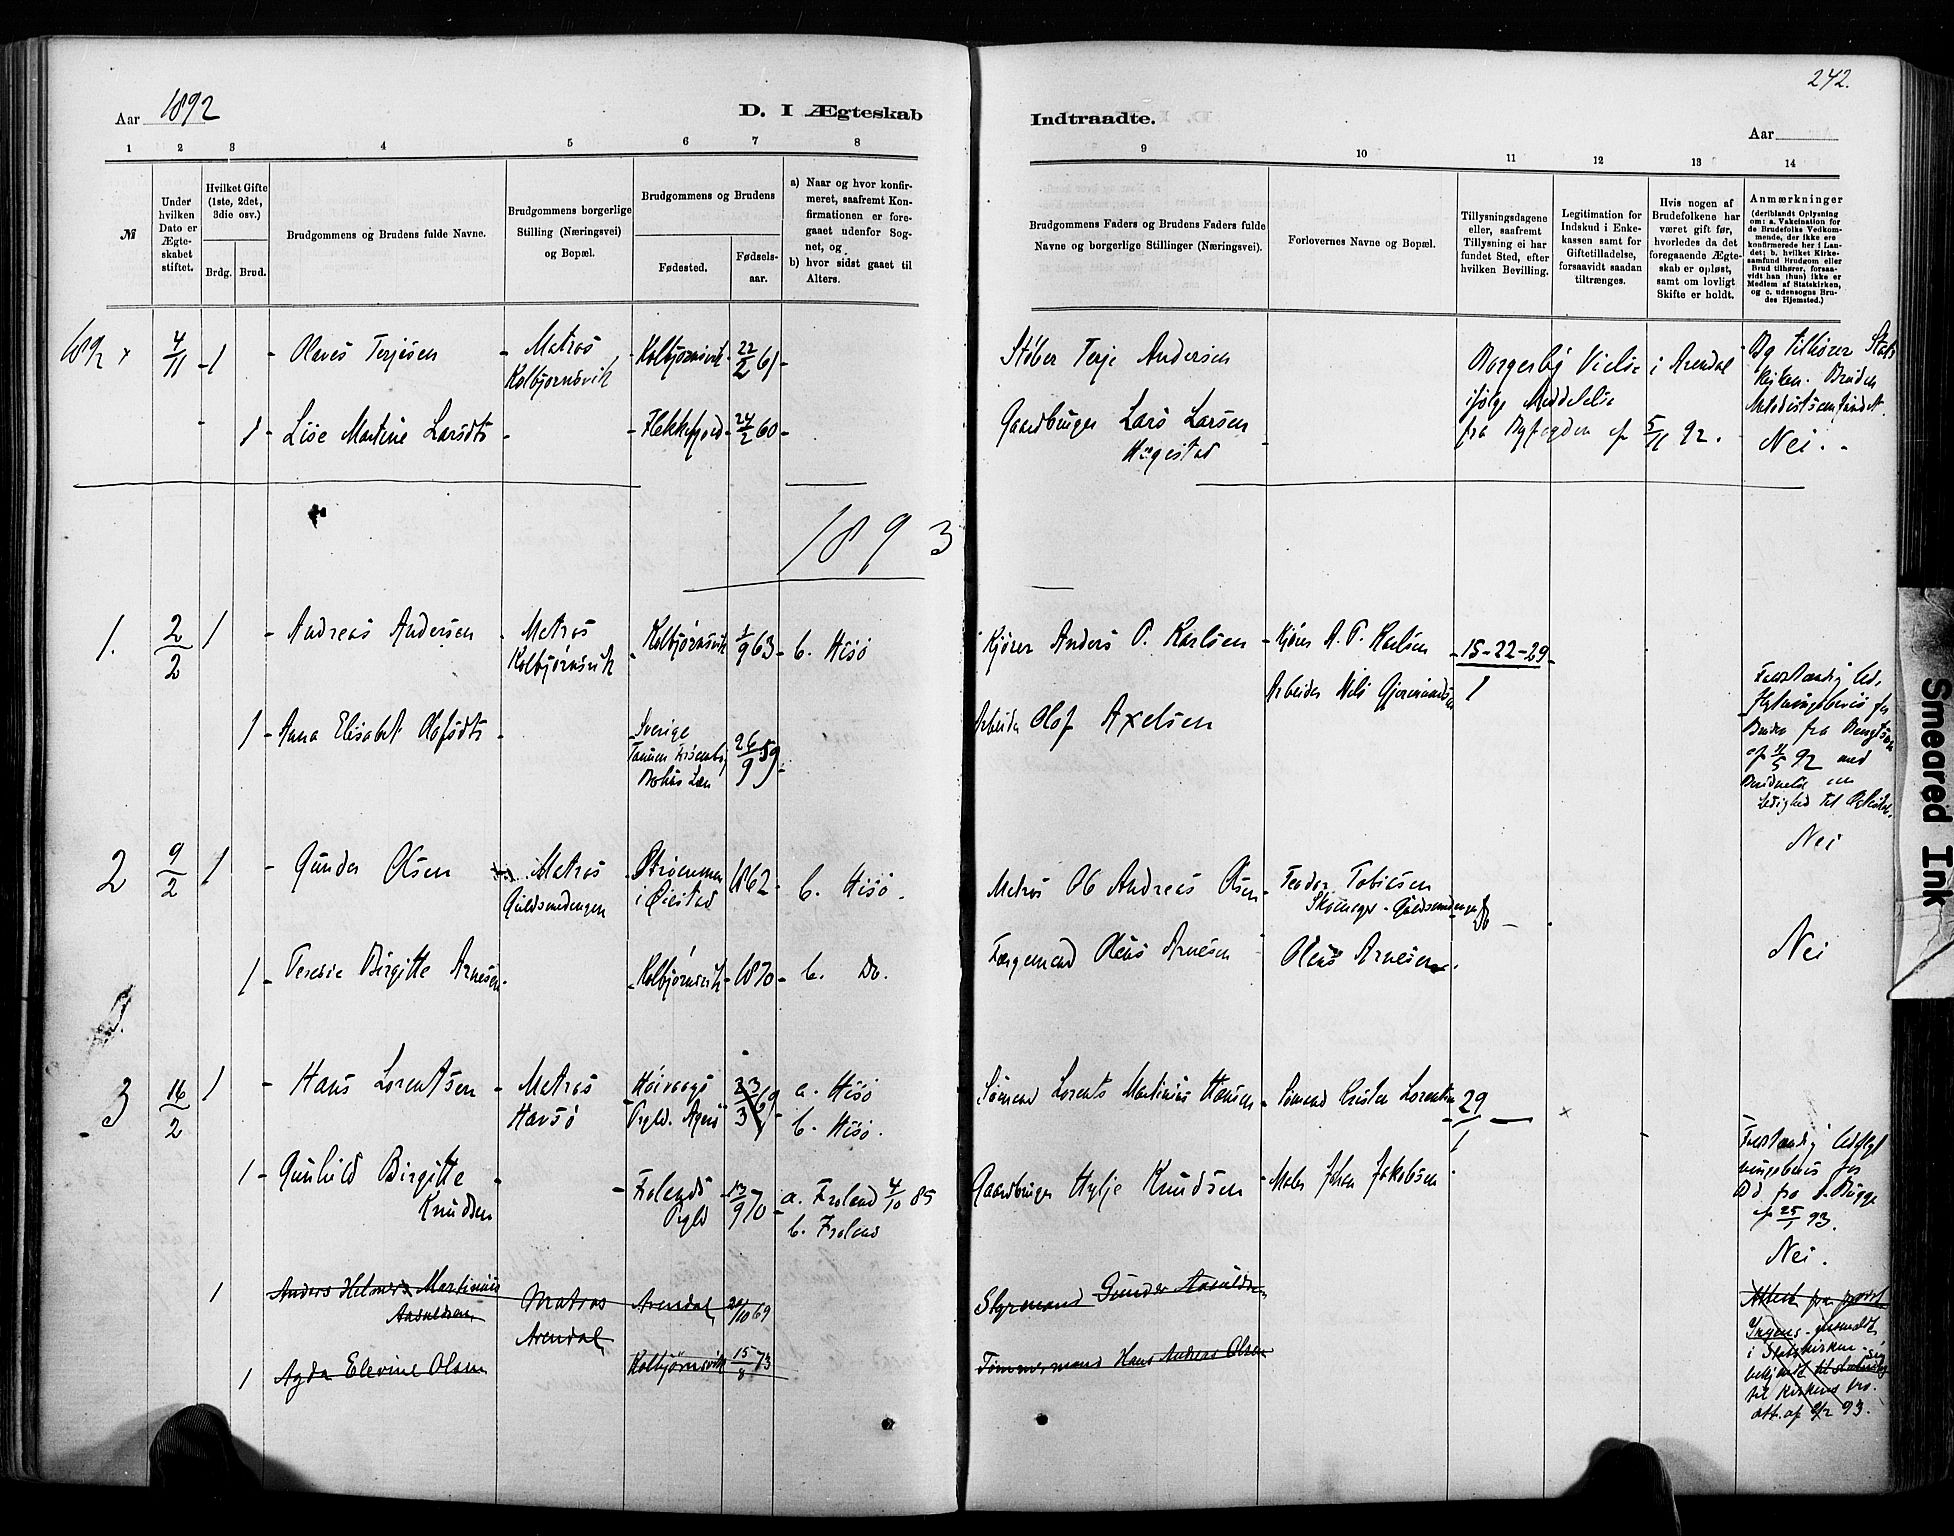 242.
Aar 1892
D. I Ægteskab
Indtraadte.
Aar
1 2 3 4 5 6 7 8
9 10 11 12 13 14
№
Under
hvilken
Dato er
Ægte-
skabet
stiftet.
Hvilket Gifte
(1ste, 2det,
3die osv.)
Brdg. Brud.
Brudgommens og Brudens fulde Navne.
Brudgommens borgerlige
Stilling (Næringsvei)
og Bopæl.
Brudgommens og Brudens
Fødested.
Fødsels-
aar.
a) Naar og hvor konfir-
meret, saafremt Kon-
firmationen er fore-
gaaet udenfor Sog-
net, og
b) hvor sidst gaaet til
Alters.
Brudgommens Faders og Brudens Faders fulde
Navne og borgerlige Stillinger (Næringsvei).
Forlovernes Navne og Bopæl.
Tillysningsdagene
eller, saafremt
Tillysning ei har
fundet Sted, efter
hvilken Bevilling.
Legitimation for
Indskud i Enke-
kassen samt for
Giftetilladelse,
forsaavidt saadan
tiltrænges.
Hvis nogen af
Brudefolkene har
været gift før,
hvorledes da det
foregaaende Ægte-
skab er opløst,
samt om lovligt
Skifte er holdt.
Anmærkninger
(deriblandt Oplysning
om: a. Vakcination for
de Brudefolks Vedkom-
mende, der ikke ere
konfirmerede her i Lan-
det; b. hvilket Kirke-
samfund Brudgom eller
Brud tilhører, forsaa-
vidt han (hun) ikke er
Medlem af Statskirken,
og c. udensogns Bru-
des Hjemsted.)
4/11 1 Olaves Terjesen Matros Kolbjørnsvik 22/2 61
Kolbjørnsvik
Støber Terje Andersen
Borgerlig Vielse i Arendal
ifølge Meddelelse
fra Byfogden af 5/11 92.
Bg tilhører Stats
kirken. Bruden
Metodistsamfundet.
Nei.
1 Lise Martine Larsdtr Hekkfjord 24/2 60
Gaardbruger Lars Larsen
Hægestad
1893
1. 2/2 1 Andreas Andersen Matros Kolbjørnsvik 1/9 63 b. Hisø
Kolbjørnsvik
Kjører Anders P. Karlsen Kjører A. P. Karlsen 15-22-29
Arbeider Nils Gjeruldsen 1
1 Anna Elisabet Olofsdtr Sverige
Tanum
Bohus Len
26/9 59
Arbeider Olof Axelsen
Bruden fra
af 11/5 92 med
Ledighed til Ægteskab.
Nei
2 9/2 1 Gunder Olsen Matros Strømmen 1862 b. Hisø.
Guldsmedengen i Øiestad
Matros Ole Andreas Olsen Teodor Tobiesen
Skomager - Guldsmedengen Do
Nei
1 Terese Birgitte Arnesen Kolbjørnsvik 1870 b. Do.
Færgemand Olaus Arnesen Olaus Arnesen.
3 16/2 1 Hans Lorentsen Matros Høivaags 23/3 69 a. Hisø
Havsø Prgld. b. Hisø.
Sømand Lorents Martinius Hansen Sømand Kristen Lorentsen 29
1
1 Gunhild Birgitte
Knudsen
Frolands
Prgld
13/9 70
a. Froland 4/10 85
b. Froland
Gaardbruger Hylje Knudsen Maler Johan Jakobsen
fra S. Bugge
af 25/1 93.
Nei.
1 Anders Helmer Martinius
Aasuldsen
Matros Arendal 20/10 69
Arendal
Styrmand Gunder Aasulds
Attest fra provst
i Statskirken
til Kirkens
att. af 9/2 93.
1 Agda Elevine Olsen Kolbjørnsvik 15/8 73
Tømmermand Hans Andreas Olsen
Smeared Ink